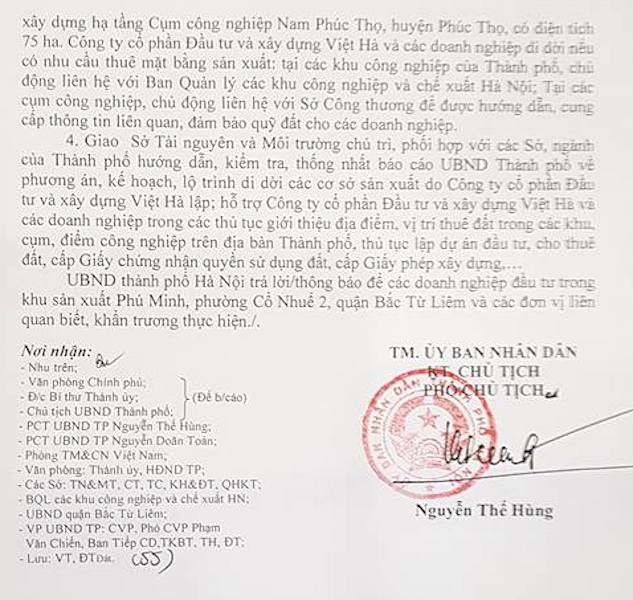 xây dựng hạ tầng Cụm công nghiệp Nam Phúc Thọ, huyện Phúc Thọ, có diện tích
75 ha. Công ty cổ phần Đầu tư và xây dựng Việt Hà và các doanh nghiệp di dời nếu
có nhu cầu thuê mặt bằng sản xuất: tại các khu công nghiệp của Thành phố, chủ
động liên hệ với Ban Quản lý các khu công nghiệp và chế xuất Hà Nội; Tại các
cụm công nghiệp, chủ động liên hệ với Sở Công thương để được hướng dẫn, cung
cấp thông tin liên quan, đảm bảo quỹ đất cho các doanh nghiệp.
4. Giao Sở Tài nguyên và Môi trường chủ trì, phối hợp với các Sở, ngành
của Thành phố hướng dẫn, kiểm tra, thống nhất báo cáo UBND Thành phố về
phương án, kế hoạch, lộ trình di dời các cơ sở sản xuất do Công ty cổ phần Đầu
tư và xây dựng Việt Hà lập; hỗ trợ Công ty cổ phần Đầu tư và xây dựng Việt Hà và
các doanh nghiệp trong các thủ tục giới thiệu địa điểm, vị trí thuê đất trong các khu,
cụm, điểm công nghiệp trên địa bàn Thành phố, thủ tục lập dự án đầu tư, cho thuê
đất, cấp Giấy chứng nhận quyền sử dụng đất, cấp Giấy phép xây dựng,...
UBND thành phố Hà Nội trả lời/thông báo để các doanh nghiệp đầu tư trong
khu sản xuất Phú Minh, phường Cổ Nhuế 2, quận Bắc Từ Liêm và các đơn vị liên
quan biết, khẩn trương thực hiện./.
Nơi nhận:
- Như trên;
- Văn phòng Chính phủ;
- Đ/c Bí thư Thành ủy;
(Để b/cáo)
- Chủ tịch UBND Thành phố;
- PCT UBND TP Nguyễn Thế Hùng;
- PCT UBND TP Nguyễn Doãn Toản;
- Phòng TM&CN Việt Nam;
- Văn phòng: Thành ủy, HĐND TP;
- Các Sở: TN&MT, CT, TC, KH&ĐT, QHKT;
- BQL các khu công nghiệp và chế xuất HN;
- UBND quận Bắc Từ Liêm;
- VP UBND TP: CVP, Phó CVP Phạm
Văn Chiến, Ban Tiếp CD,TKBT, TH, ĐT;
- Lưu: VT, ĐTĐất. (55)
TM. ỦY BAN NHÂN DÂN
KT. CHỦ TỊCH
PHÓ CHỦ TỊCH
DAN NHÂN DÂN THÀNH PHỐ
NỘI
Nguyễn Thế Hùng